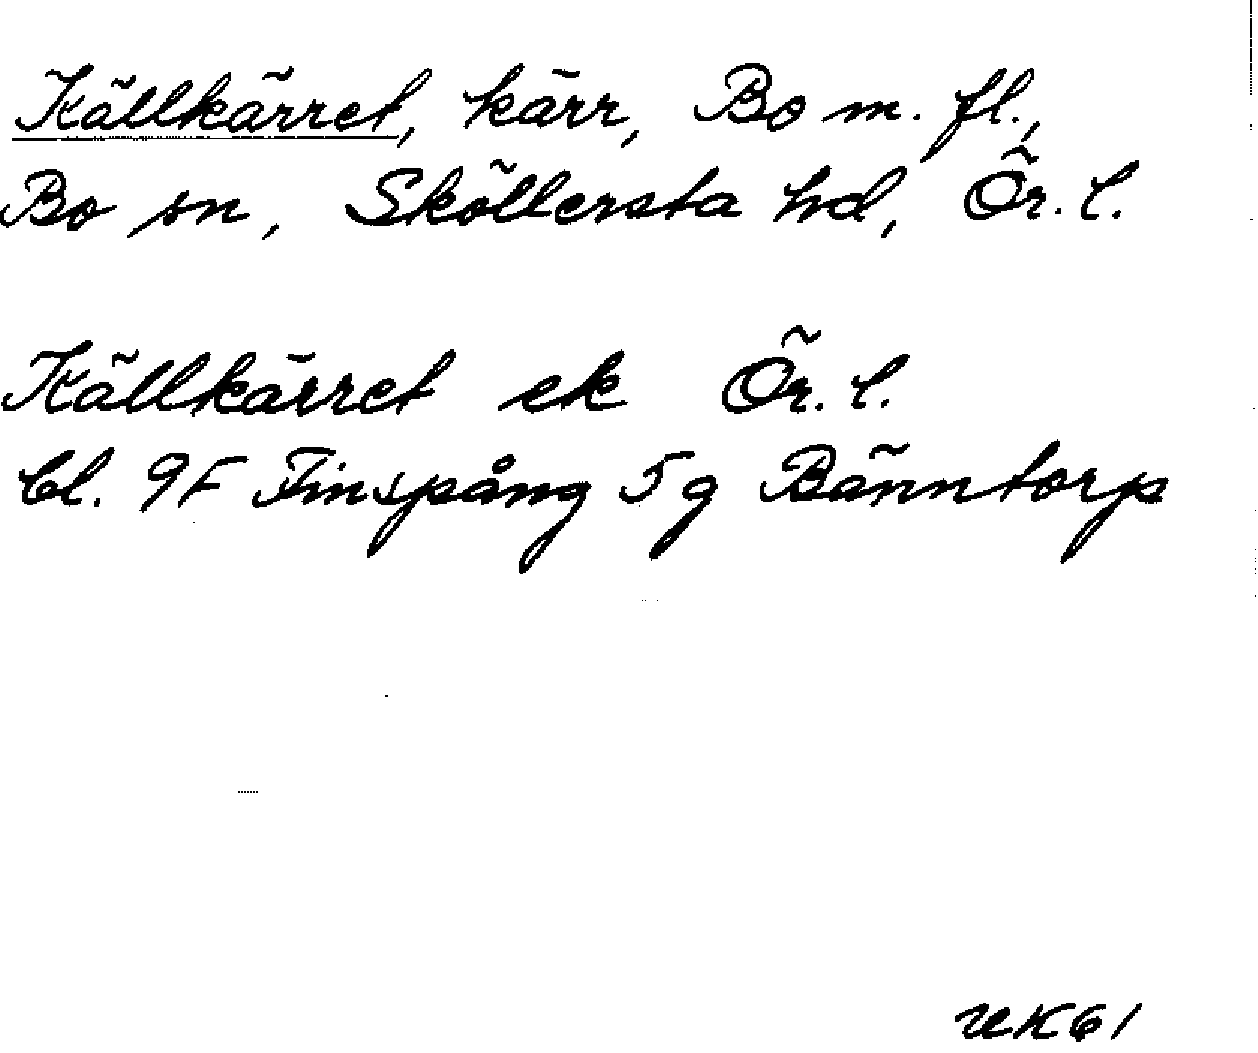 Källkärret, kärr, Bo m. fl.,
Bo sn, Sköllersta hd, Ör. l.
Källkärret ek Ör. l.
bl. 9F Finspång 5 g Bänntorp
UK61